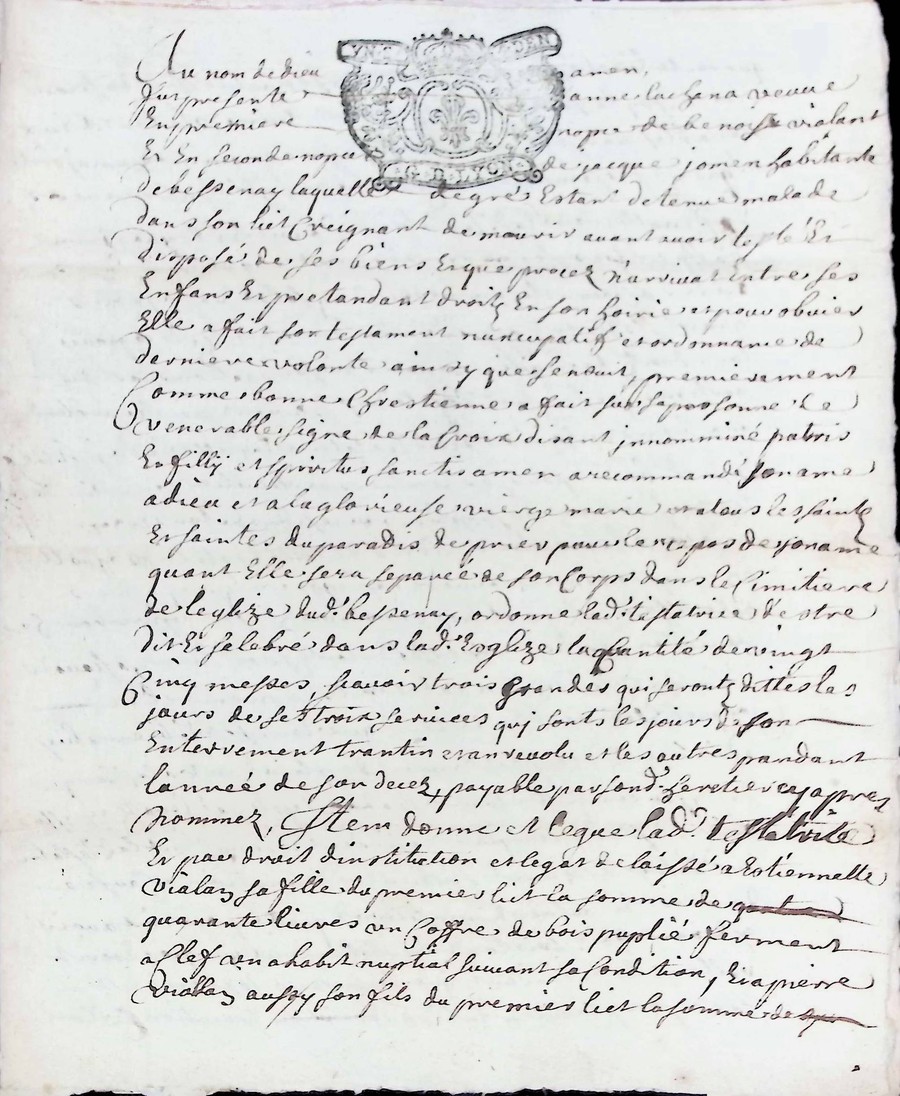 Au nom de dieu amen,
fut presente anne lachena veuve
En premiere nopce de benoist vialant
Et En seconde nopce de jacque jomen habitante
de bessenay laquelle degré Estant detenue malade
dans son lict Creignant de mourir avant avoir testé Et
disposé de ses biens Et que procez n'arrivat Entre ses
Enfans Et pretandant droitz En son hoirie et pour obvier
Elle a fait son testament nuncupatif et ordonnance de
derniere volonte ainsy que s'enduit, premierement
Comme bonne Chrestienne a fait sur sa personne le
venerable signe de la Croix disant in nominé patris
Et fillÿ et spiritus sancti amen a recommandé son ame
a dieu et a la glorieuse vierge marie et a tous les saintz
Et saintes du paradis de prier pour le repos de son ame
quant Elle sera separée de son Corps dans le Cimitiere
de leglize dud.t bessenay, ordonne lad.t testatrice d'estre
dit Et selebré dans lad.t Esglize la quantité de vingt
Cinq messes, scavoir trois grandes qui seront dittes les
jours de ses trois services qui sont les jours de son
Enterrement trantin et an revolu et les autres pandant
l'année de son decez, payable par sond.t heretier cy apres
Nommez, Item donne et legue lad.t testatrice
Et par droit dinstitution et legat delaissé a Estiennelle
Vialan sa fille du premier lict la somme de
quarante livres un Coffre de bois puplié ferment
a Clef un ahabit nuptial suivant sa Condition, Et a pierre
Viallan aussy son fils du premier lict la somme de
YN·S DEN
G·D·LYON